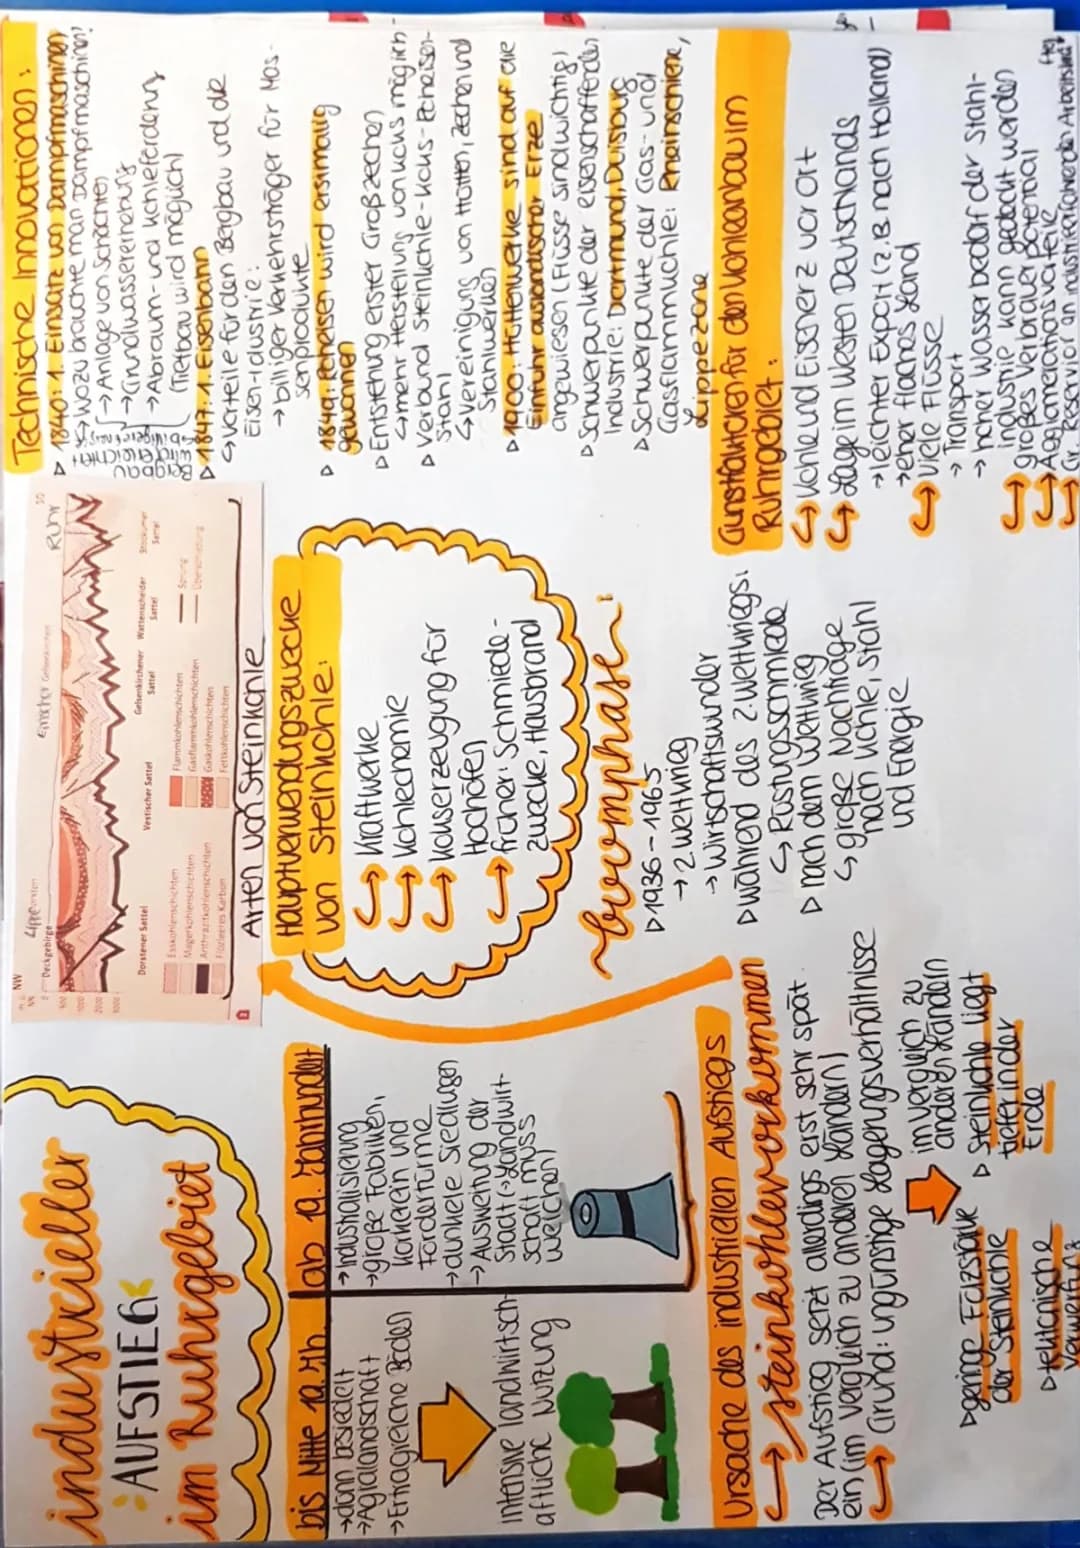 industrieller
AUFSTIEG
im Ruhrgebiet
bis Mitte 19. Jh.
→dünn besiedelt
→Agrarlandschaft
→Ertragreiche Böden
intensive landwirtsch-
aftliche Nutzung
ab 19. Jahrhundert
→Industrialisierung
→große Fabriken,
Kokerein und
Fördertürme
→dunkele Siedlungen
→Ausweitung der
Stadt (→Landwirt-
schaft muss
weichen)
Ursache des industriellen Aufstiegs
→ Steinkohlevorkommen
Der Aufstieg setzt allerdings erst sehr spät
ein (im Vergleich zu anderen Ländern)
→ Grund: ungünstige Lagerungsverhältnisse
im Vergleich zu
anderen Ländern
▹geringe Flözstärke
der Steinkohle
▹Steinkohle liegt
tiefer in der
Erde
▹tektonische
NW
Lippe
Emscher
Ruhr
SO
Deckgebirge
Gelsenkirchen
Dorstener Sattel
Vestischer Sattel
Gelsenkirchener
Sattel
Wattenscheider
Sattel
Stockumer
Sattel
Esskohlenschichten
Magerkohlenschichten
Anthrazitkohlenschichten
Flözleeres Karbon
Flammkohlenschichten
Gasflammkohlenschichten
Gaskohlenschichten
Fettkohlenschichten
Sprung
Überschiebung
Arten von Steinkohle
Hauptverwendungszwecke
von Steinkohle:
→ Kraftwerke
→ Kohlechemie
→ Kokserzeugung für
Hochöfen
→ früher: Schmiede-
zwecke, Hausbrand
~boomphase:
▹1936-1965
→2. Weltkrieg
→Wirtschaftswunder
▹während des 2. Weltkriegs:
↳ Rüstungsschmiede
▹nach dem Weltkrieg
↳große Nachfrage
nach Kohle, Stahl
und Energie
Technische Innovationen:
▹1840: 1. Einsatz von Dampfmaschinen
↳Wozu brauchte man Dampfmaschinen?
→Anlage von Schächten
→Grundwasserhebung
→Abraum- und Kohleförderung
(Tiefbau wird möglich)
Bergbau
wird erleichtert +
▹1847: 1. Eisenbahn
↳Vorteile für den Bergbau und die
Eisenindustrie:
→billiger Verkehrsträger für Mas-
senprodukte
▹1849: Roheisen wird erstmalig
gewonnen
▹Entstehung erster Großzechen
↳mehr Herstellung von Koks möglich
▹Verbund Steinkohle-Koks-Roheisen-
Stahl
↳Vereinigung von Hütten, Zechen und
Stahlwerken
▹1900: Hüttenwerke sind auf die
Einfuhr ausländischer Erze
angewiesen (Flüsse sind wichtig)
▹Schwerpunkte der eisenschaffenden
Industrie: Dortmund, Duisburg
▹Schwerpunkte der Gas- und
Gasflammkohle: Rheinschiene,
Lippezone
Gunstfaktoren für den Kohleanbau im
Ruhrgebiet:
→ Kohle und Eisenerz vor Ort
→ Lage im Westen Deutschlands
→leichter Export (z.B. nach Holland)
→eher flaches Land
→ viele Flüsse
→ Transport
→ hoher Wasserbedarf der Stahl-
industrie kann gedeckt werden
→ großes Verbraucherpotential
→ Agglomerationsvorteile
→ Gr. Reservior an industrieführenden Arbeitskräften